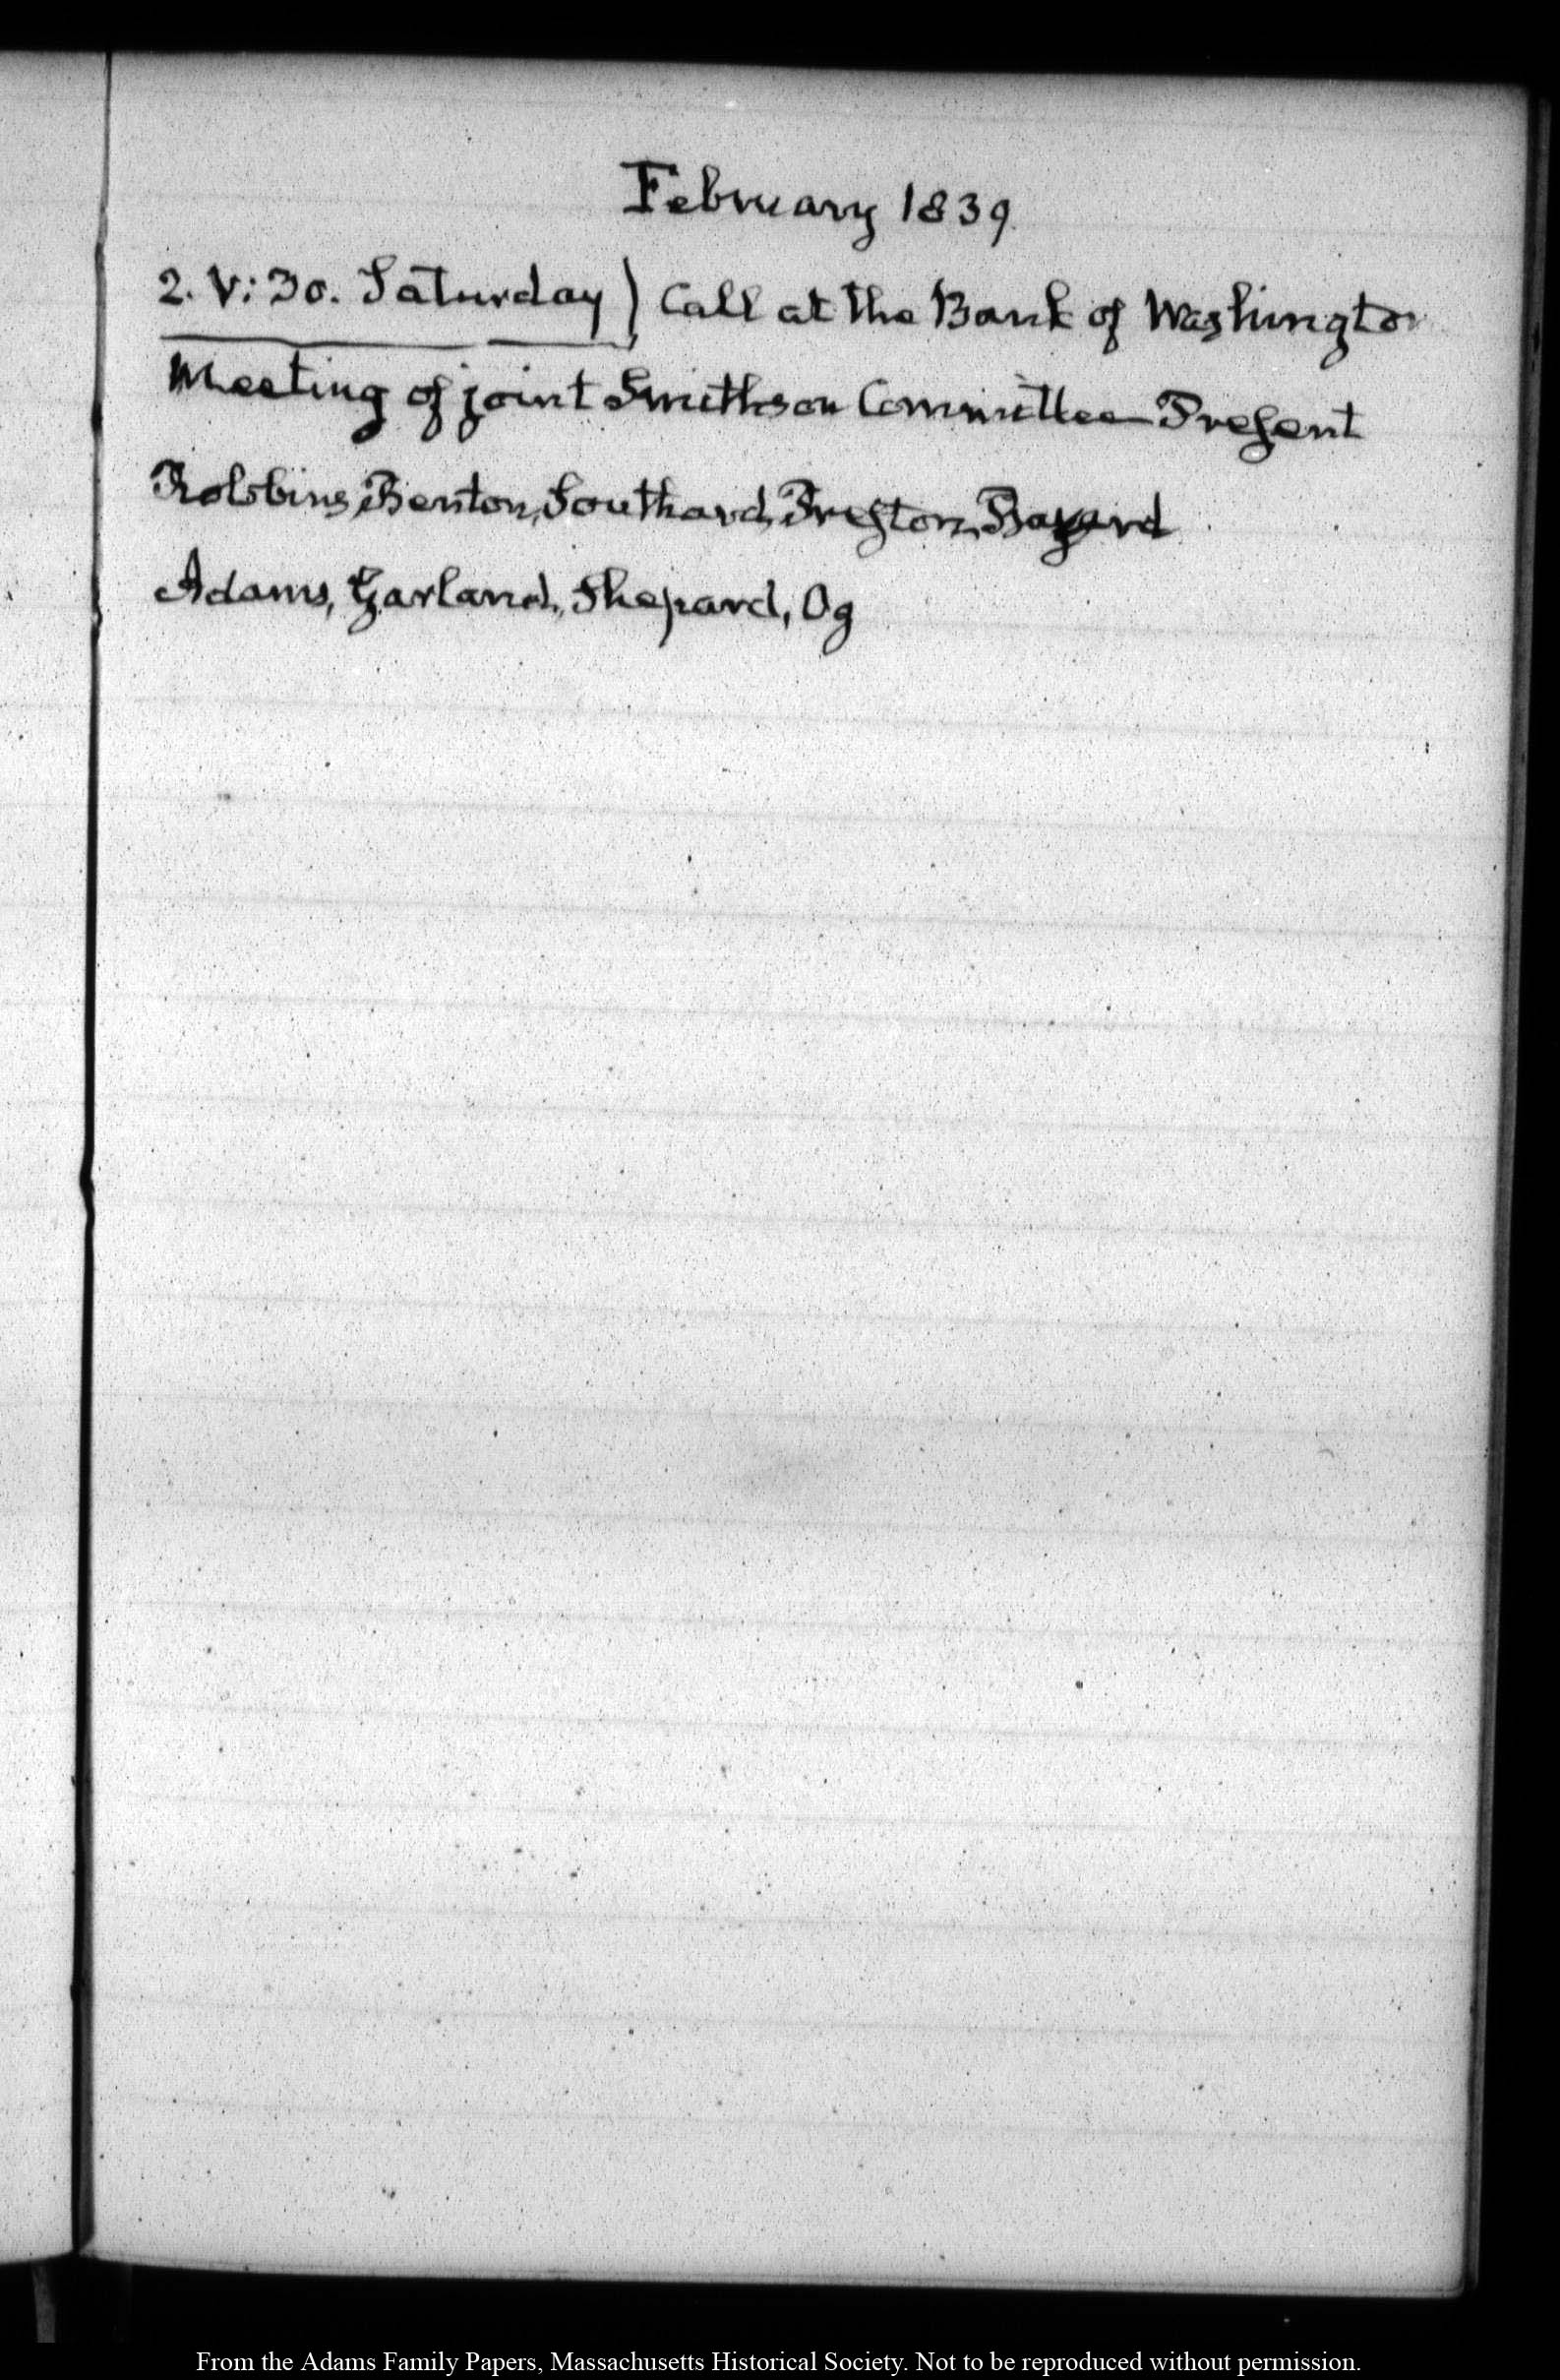 February 1839.
2. V: 30. Saturday) Call at the Bank of Washington
Meeting of joint Smithson Committee—Present
Robbins, Benton, Southard, Preston, Bayard
Adams, Garland, Shepard, Og
From the Adams Family Papers, Massachusetts Historical Society. Not to be reproduced without permission.